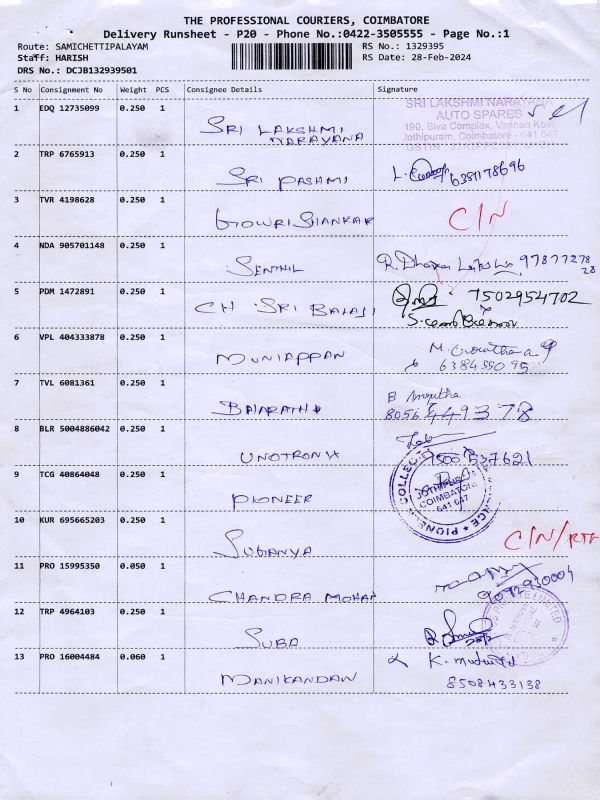 THE PROFESSIONAL COURIERS, COIMBATORE
Delivery Runsheet - P20 - Phone No.:0422-3505555 - Page No.:1
Route: SAMICHETTIPALAYAM RS No.: 1329395
Staff: HARISH RS Date: 28-Feb-2024
DRS No.: DCJB132939501
S No Consignment No Weight PCS Consignee Details Signature
SRI LAKSHMI NARAYANA
AUTO SPARES
190, Siva Complex,
Jothipuram, Coimbatore - 641 047
1 EDQ 12735099 0.250 1 SRI LAKSHMI
NARAYANA
2 TRP 6765913 0.250 1 SRI PASHMI
3 TVR 4198628 0.250 1 GOWRI SHANKAR C/N
4 NDA 905701148 0.250 1 SENTHIL
5 PDM 1472891 0.250 1 CH SRI BALAJI 7502954702
6 VPL 404333878 0.250 1 MUNIAPPAN
7 TVL 6081361 0.250 1 8056449378
8 BLR 5004886042 0.250 1
9 TCG 40864048 0.250 1 PIONEER
JOTHIPURAM
COIMBATORE
641 047
10 KUR 695665203 0.250 1 SUGANYA C/N/RTF
11 PRO 15995350 0.050 1 CHANDRA MOHAN
12 TRP 4964103 0.250 1 SUBA
13 PRO 16004484 0.060 1 MANIKANDAN
8508433138